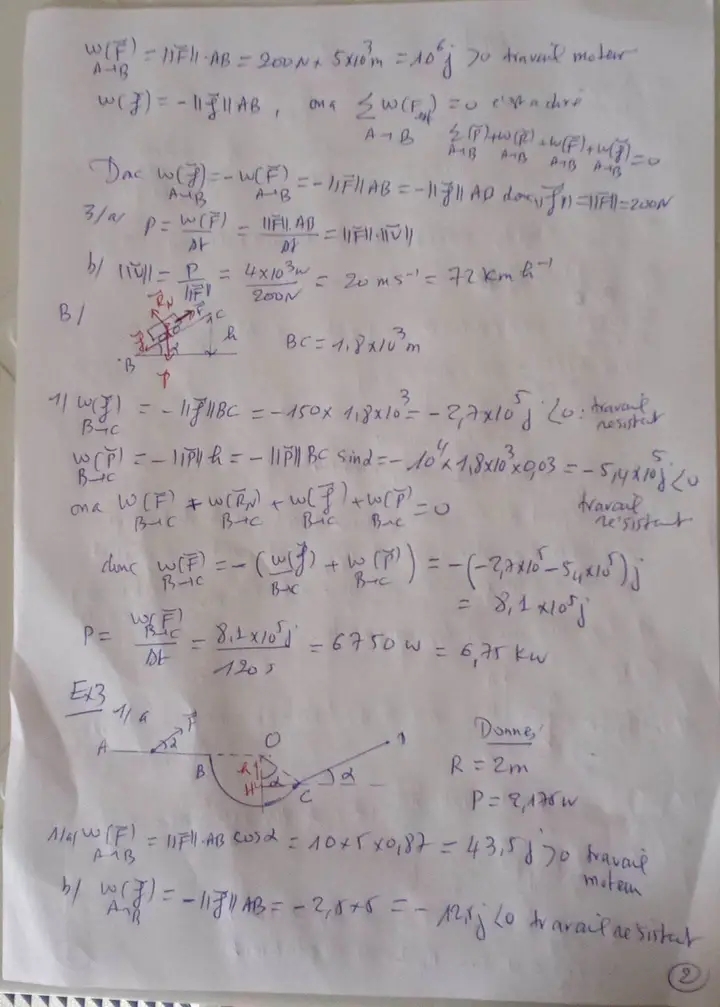 W(F⃗) = ||F⃗||·AB = 200N × 5×10³m = 10⁶j >0 travail moteur
A→B
W(f⃗) = -||f⃗||AB, on a ΣW(F⃗ext) = 0 c'est a dire
A→B ΣW(P⃗)+W(R⃗)+W(F⃗)+W(f⃗)=0
A→B A→B A→B A→B
Donc W(f⃗) = -W(F⃗) = -||F⃗||AB = -||f⃗||AB donc ||f⃗||=||F⃗||=200N
A→B A→B
3/a P = W(F⃗)/Δt = ||F⃗||·AB/Δt = ||F⃗||·||V⃗||
b/ ||V⃗|| = P/||F⃗|| = 4×10³w/200N = 20 ms⁻¹ = 72 km h⁻¹
B/ R⃗N F⃗ C h f⃗ α B P⃗
BC = 1,8×10³m
1/ W(f⃗) = -||f⃗||BC = -150×1,8×10³ = -2,7×10⁵j <0 : travail resistant
B→C
W(P⃗) = -||P⃗||h = -||P⃗||BC sinα = -10⁴×1,8×10³×0,03 = -5,4×10⁵j <0
B→C travail resistant
on a W(F⃗) + W(R⃗N) + W(f⃗) + W(P⃗) = 0
B→C B→C B→C B→C
donc W(F⃗) = -(W(f⃗) + W(P⃗)) = -(-2,7×10⁵ - 5,4×10⁵)j
B→C B→C B→C
= 8,1×10⁵j
P = W(F⃗)/Δt = 8,1×10⁵j/120s = 6750w = 6,75 Kw
B→C
Ex3
1/a
A α F⃗ B O h H α C α D
Donnes:
R = 2m
P = 2,175w
1/a) W(F⃗) = ||F⃗||·AB cosα = 10×5×0,87 = 43,5j >0 travail moteur
A→B
b/ W(f⃗) = -||f⃗||AB = -2,5×5 = -12,5j <0 travail resistant
A→B
2